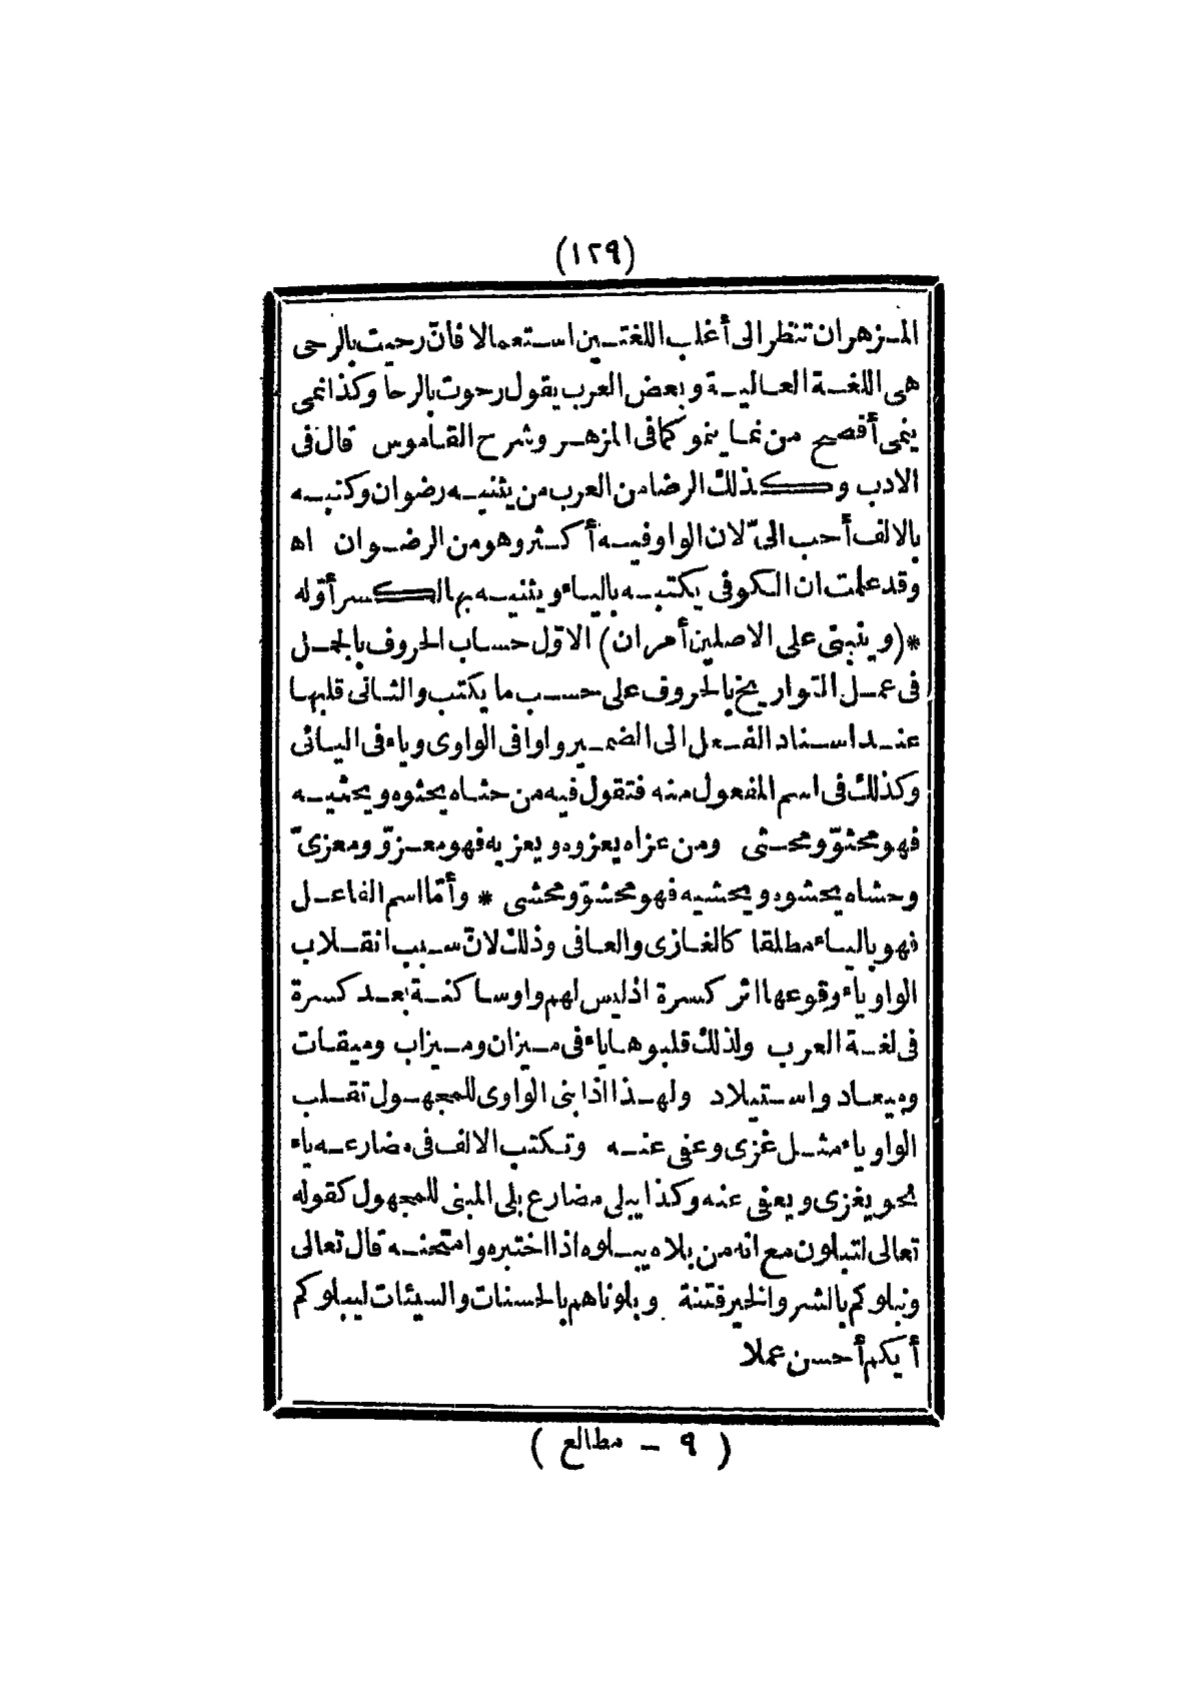 (١٢٩)
المزهر ان تنظر الى أغلب اللغتين استعمالا فانّ رحيت بالرحى
هى اللغة العالية وبعض العرب يقول رحوت بالرحا وكذا نمى
ينمى أفصح من نما ينمو كما فى المزهر وشرح القاموس قال فى
الادب وكذلك الرضا من العرب من يثنيه رضوان وكتبه
بالالف أحب الىّ لان الواو فيه أكثر وهو من الرضوان اه
وقد علمت ان الكوفى يكتبه بالياء ويثنيه بها الكسر أوّله
*(وينبنى على الاصلين أمران) الاوّل حساب الحروف بالجمل
فى عمل التواريخ بالحروف على حسب ما يكتب والثانى قلبها
عند اسناد الفعل الى الضمير واوا فى الواوى وياء فى اليائى
وكذلك فى اسم المفعول منه فتقول فيه من حثاه يحثوه ويحثيه
فهو محثوّ ومحثى ومن عزاه يعزوه ويعزيه فهو معزوّ ومعزىّ
وحشاه يحشوه ويحشيه فهو محشوّ ومحشى * وأمّا اسم الفاعل
فهو بالياء مطلقا كالغازى والعافى وذلك لانّ سبب انقلاب
الواو ياء وقوعها اثر كسرة اذ ليس لهم واو ساكنة بعد كسرة
فى لغة العرب ولذلك قلبوها ياء فى ميزان وميزاب وميقات
وميعاد واستيلاد ولهذا اذا بنى الواوى للمجهول تقلب
الواو ياء مثل غزى وعفى عنه وتكتب الالف فى مضارعه ياء
نحو يغزى ويعفى عنه وكذا يبلى مضارع بلى المبنى للمجهول كقوله
تعالى لتبلون مع انه من بلاه يبلوه اذا اختبره وامتحنه قال تعالى
ونبلوكم بالشر والخير فتنة وبلوناهم بالحسنات والسيئات ليبلوكم
أيكم أحسن عملا
( ٩ - مطالع )